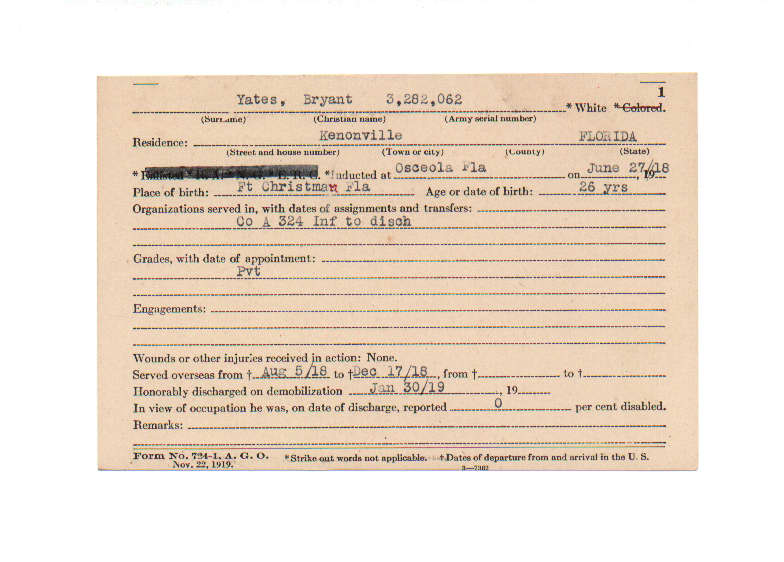 1
Yates, Bryant 3,282,062 * White * Colored.
(Surname) (Christian name) (Army serial number)
Residence: Kenonville FLORIDA
(Street and house number) (Town or city) (County) (State)
* Enlisted * R. A. * N. G. * E. R. C. * Inducted at Osceola Fla on June 27/18, 19
Place of birth: Ft Christmaw Fla Age or date of birth: 26 yrs
Organizations served in, with dates of assignments and transfers:
Co A 324 Inf to disch
Grades, with date of appointment:
Pvt
Engagements:
Wounds or other injuries received in action: None.
Served overseas from † Aug 5/18 to † Dec 17/18, from † to †
Honorably discharged on demobilization Jan 30/19, 19
In view of occupation he was, on date of discharge, reported 0 per cent disabled.
Remarks:
Form No. 724-1, A. G. O. * Strike out words not applicable. † Dates of departure from and arrival in the U. S.
Nov. 22, 1919. 3—7302